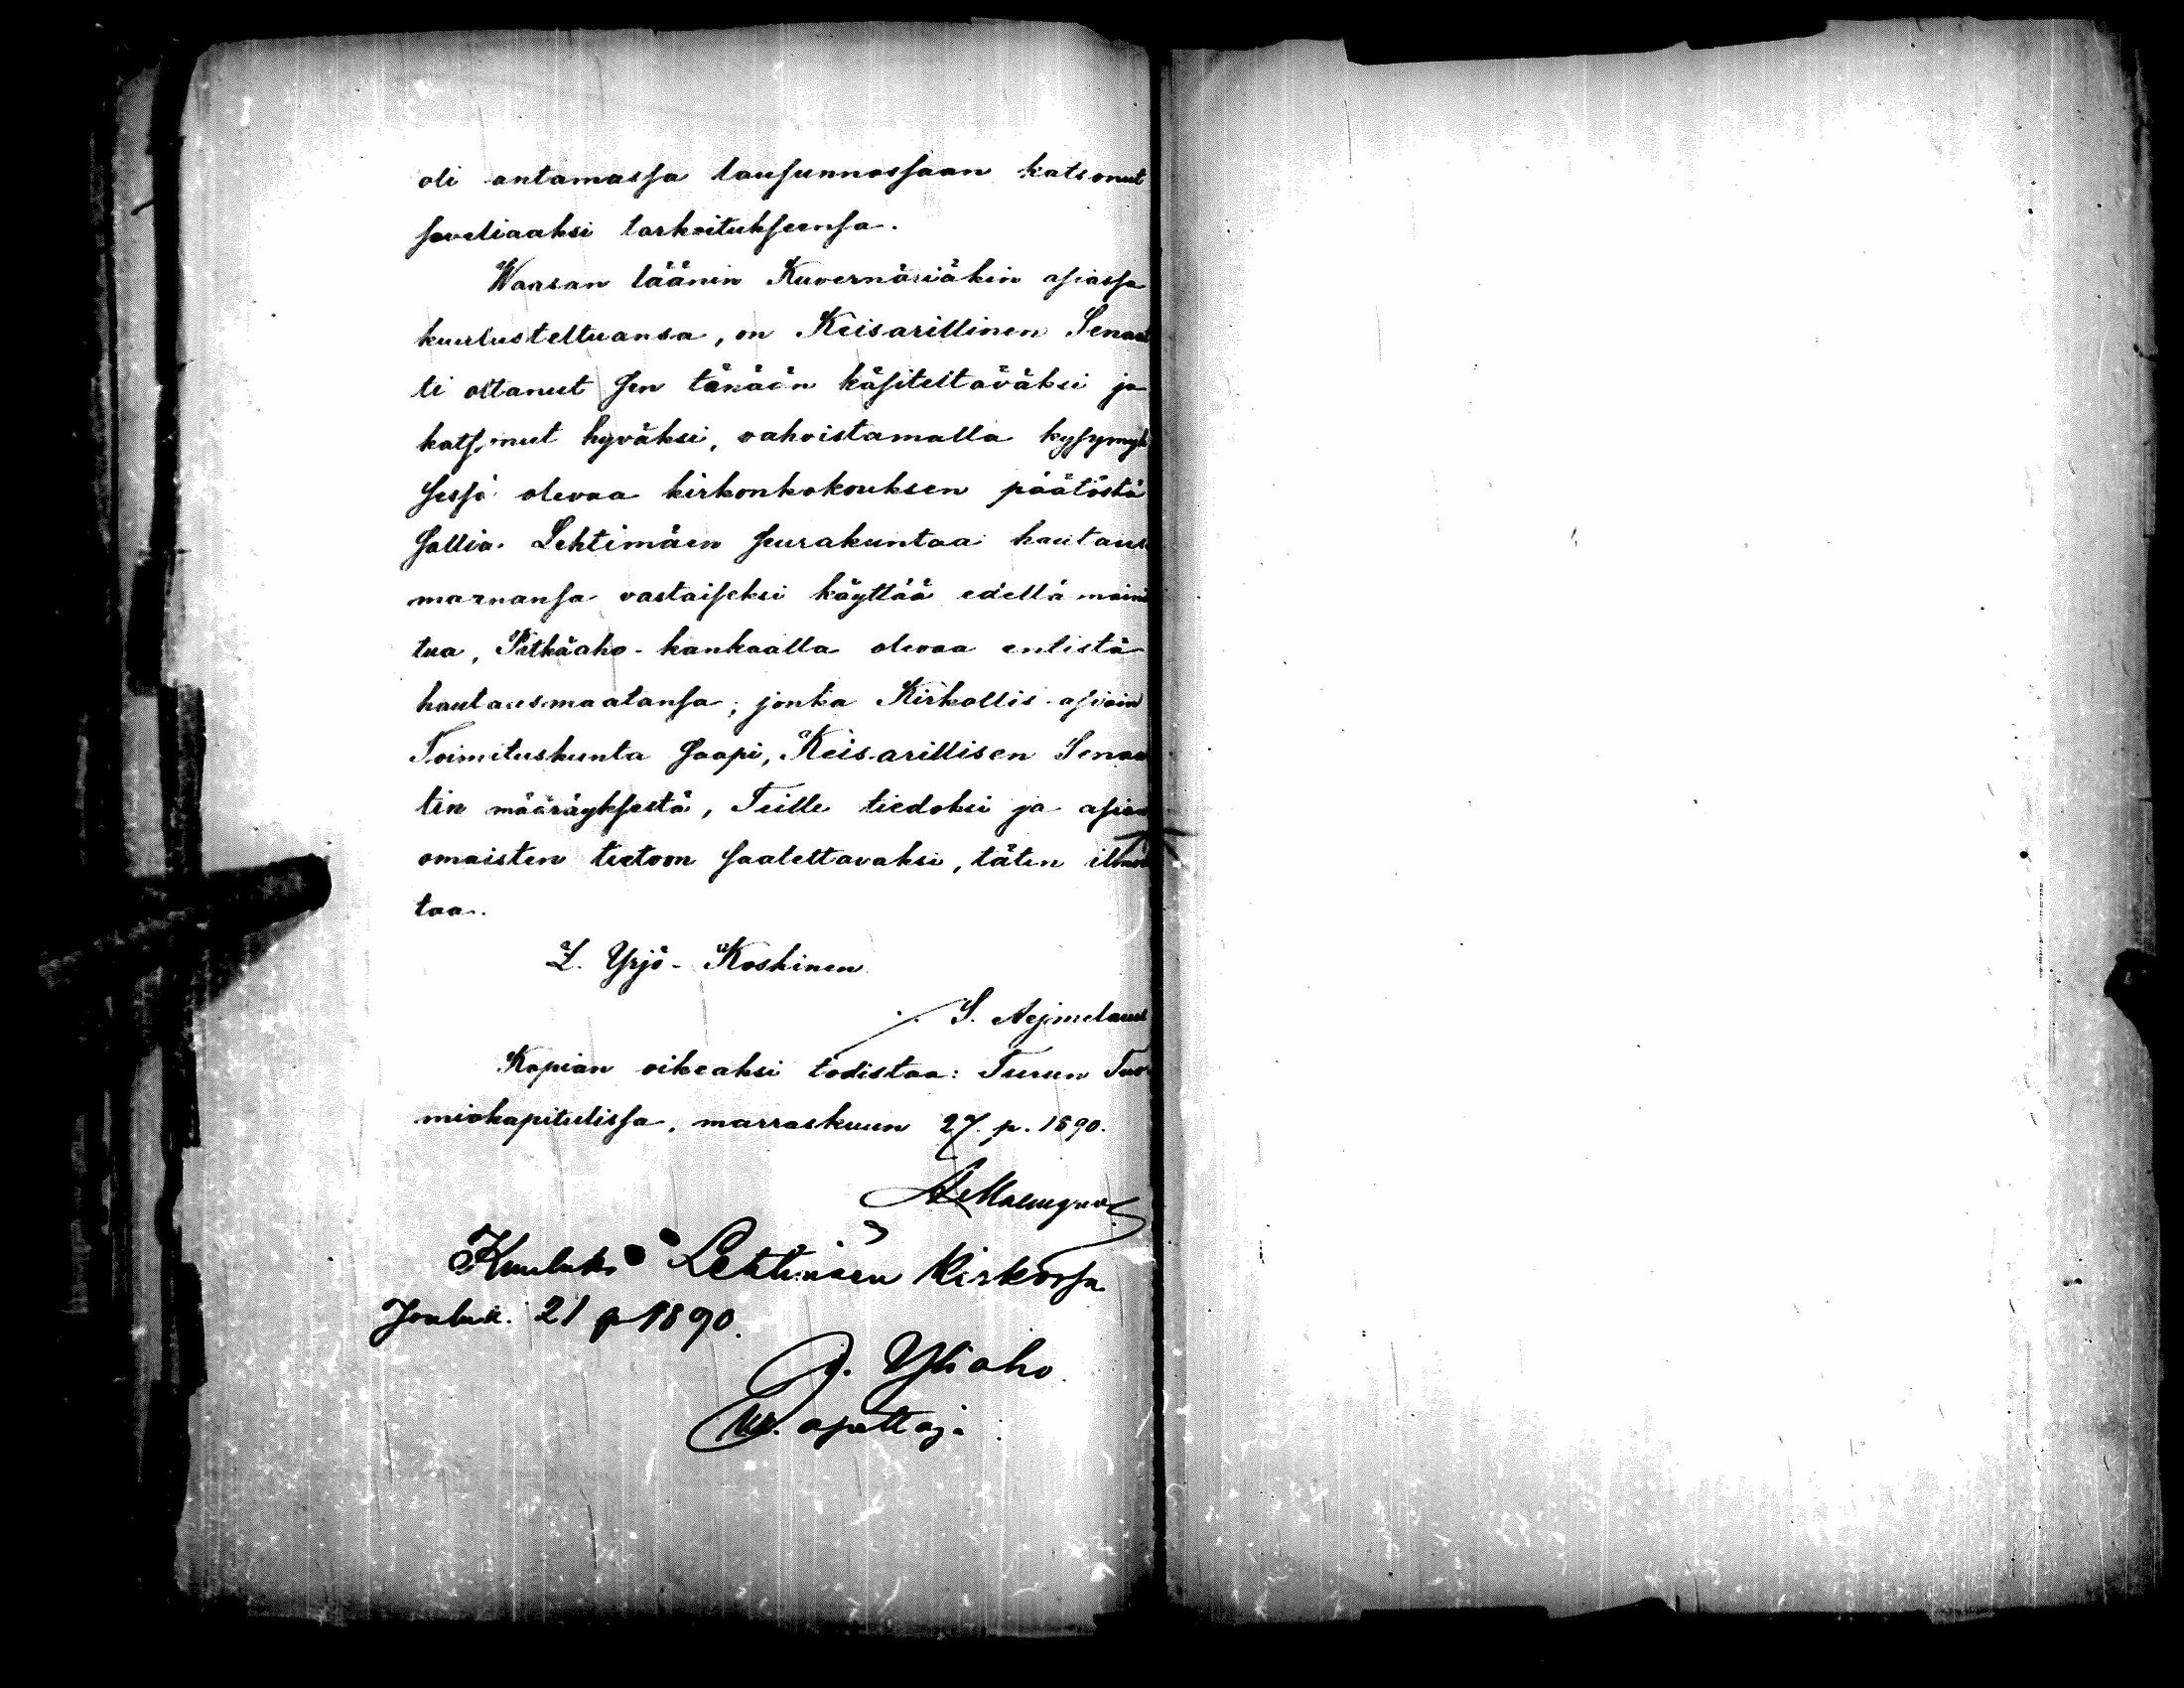 oli antamassa lausunnossaan katsonut
soveliaaksi tarkoitukseensa.
Waasan läänin Kuvernöriäkin asiassa
kuulusteltuansa, on Keisarillinen Senaat
ti ottanut sen tänään käsiteltäväksi ja
katsonut hyväksi, vahvistamalla kysymyk
sessä olevaa kirkonkokouksen päätöstä
sallia Lehtimäen seurakuntaa hautaus
maanansa vastaiseksi käyttää edellä main
tua, Pitkäaho-kankaalla olevaa entistä
hautausmaatansa; jonka Kirkollis-asiain
Toimituskunta saapi, Keisarillisen Senaa
tin määräyksestä, Teille tiedoksi ja asian
omaisten tietoon saatettavaksi, täten ilmoit
taa.
Z. Yrjö-Koskinen
S. Aejmelaeus
Kopian oikeaksi todistaa: Turun Tuo
miokapitulissa, marraskuun 27. p. 1890.
Kuulutt Lehtimäen Kirkossa
Jouluk. 21 p 1890.
J. Yliaho
kr. apettaja